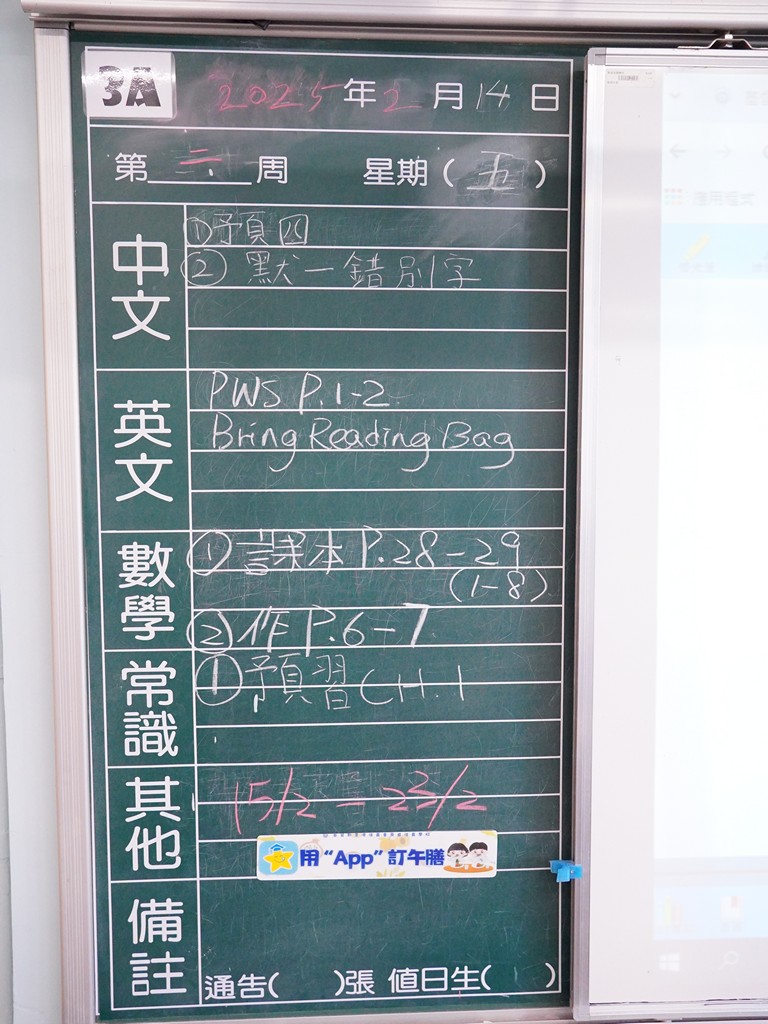 3A 2025年2月14日
第二周 星期(五)
中文
①預頁四
②默一錯別字
英文
PWS P.1-2
Bring Reading Bag
數學
①課本P.28-29
(1-8)
②作P.6-7
常識
①預習CH.1
其他
用“App”訂午膳
備註
通告( )張 值日生( )